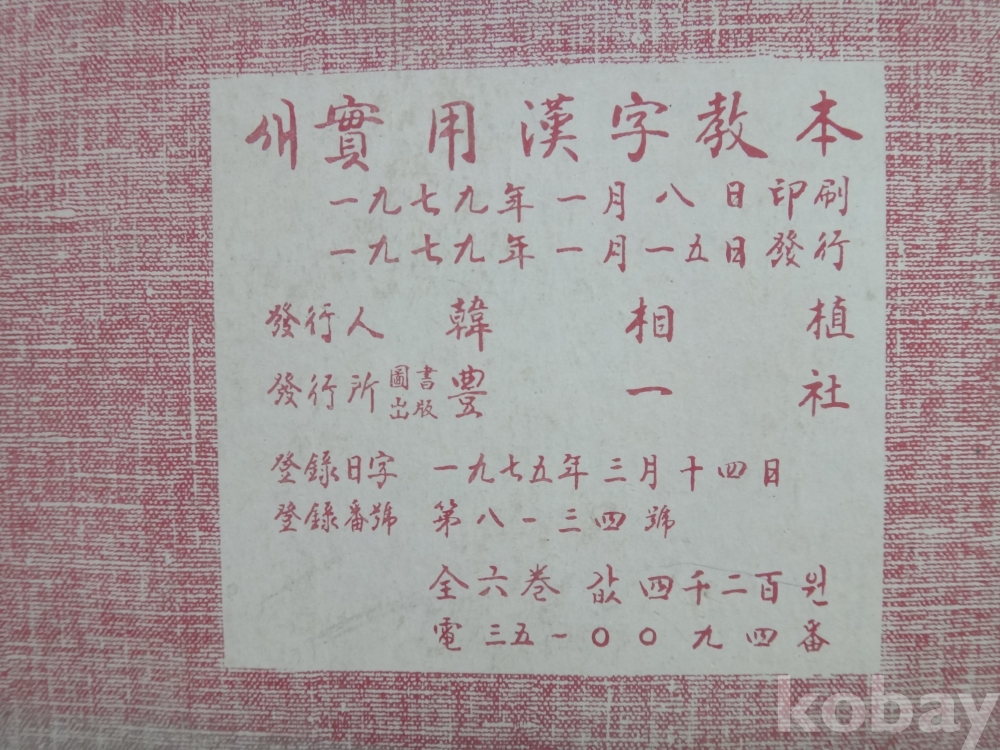 새實用漢字教本
一九七九年一月八日印刷
一九七九年一月一五日發行
發行人 韓相植
發行所 圖書出版 豊一社
登錄日字 一九七五年三月十四日
登錄番號 第八-三四號
全六巻 값 四千二百원
電 三五-〇〇九四番
kobay